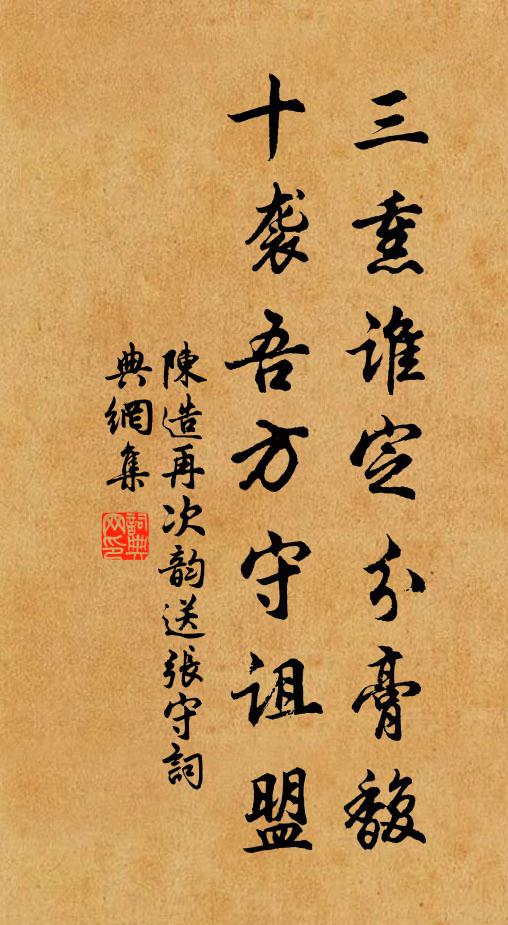 三熏谁定分膏馥
十袭吾方守诅盟
陳造再次韵送張守詞
典網集
詞典网印